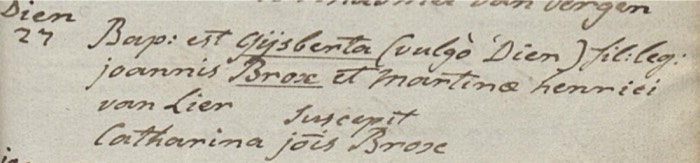 van Bergen
Dien
27 Bap: est Gijsberta (vulgò Dien) fil: leg:
joannis Brox et Martinæ henrici
van Lier
Suscepit
Catharina jōis Brox